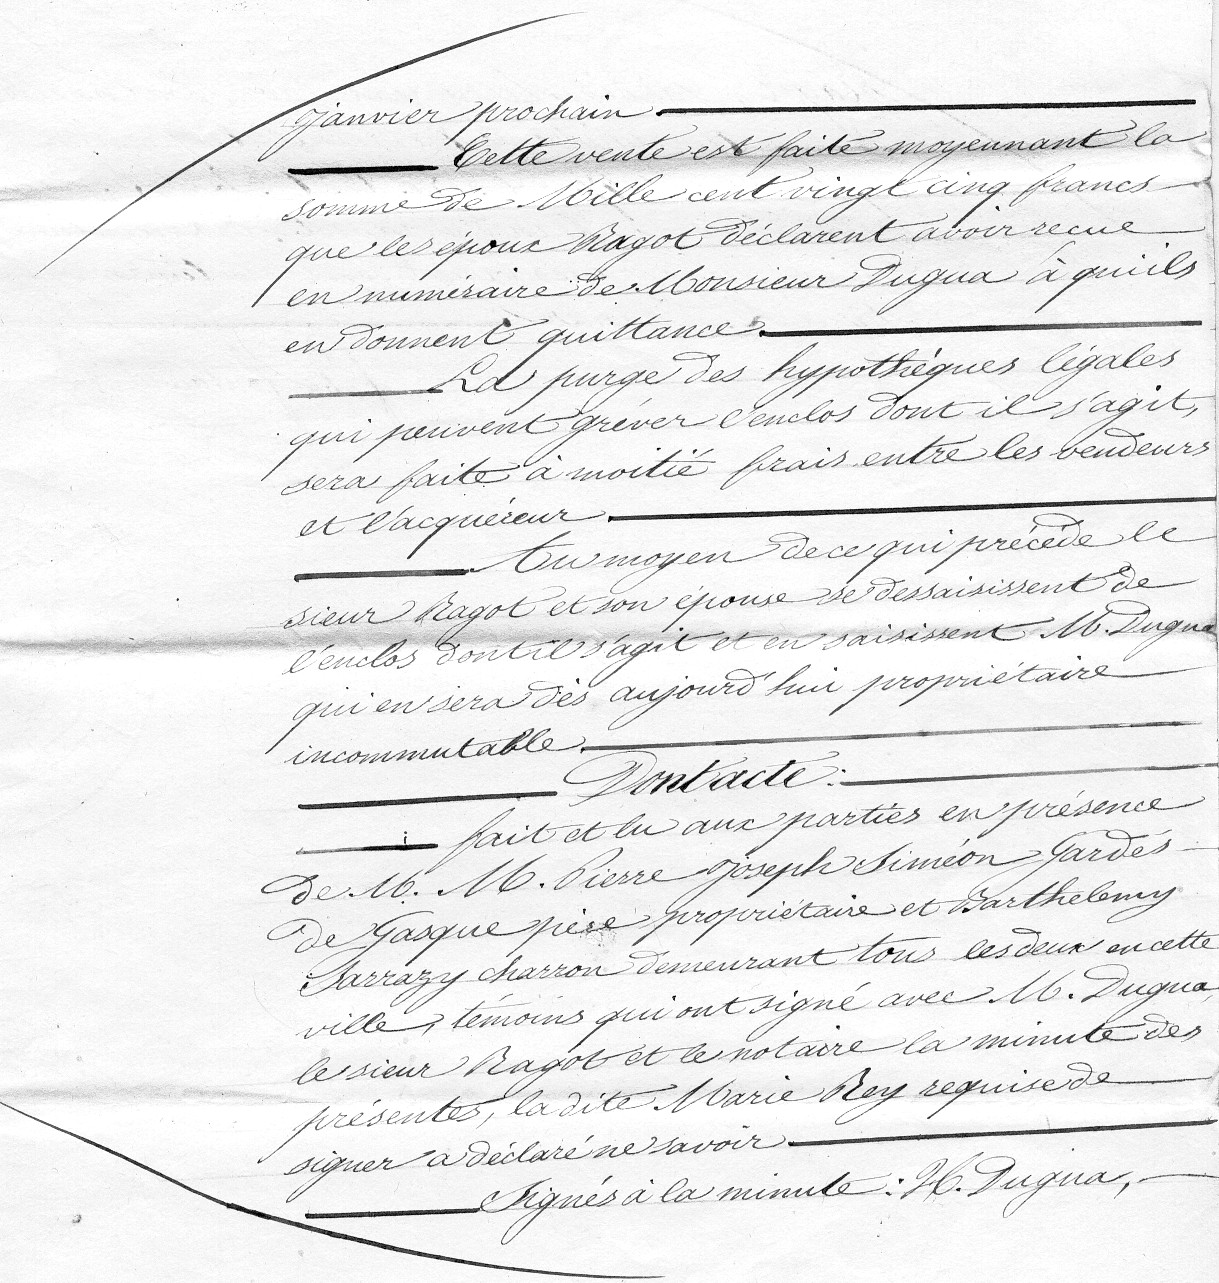 janvier prochain
Cette vente est faite moyennant la
somme de Mille cent vingt cinq francs
que les époux Ragot déclarent avoir recue
en numéraire de Monsieur Dugua à qui ils
en donnent quittance.
La purge des hypothéques légales
qui peuvent gréver l'enclos dont il s'agit,
sera faite à moitié frais entre les vendeurs
et l'acquéreur.
Au moyen de ce qui précéde le
sieur Ragot et son épouse se dessaisissent de
l'enclos dont il s'agit et en saisissent M. Dugua
qui en sera dès aujourd'hui propriétaire
incommutable.
Dont acte:
fait et lu aux parties en présence
de M. M. Pierre Joseph Siméon Gardés
de Gasque pére propriétaire et Barthelemy
Sarrazy charron demeurant tous les deux en cette
ville, témoins qui ont signé avec M. Dugua,
le sieur Ragot et le notaire la minute des
présentes, la dite Marie Rey requise de
signer a déclaré ne savoir
Signés à la minute: H. Dugua,